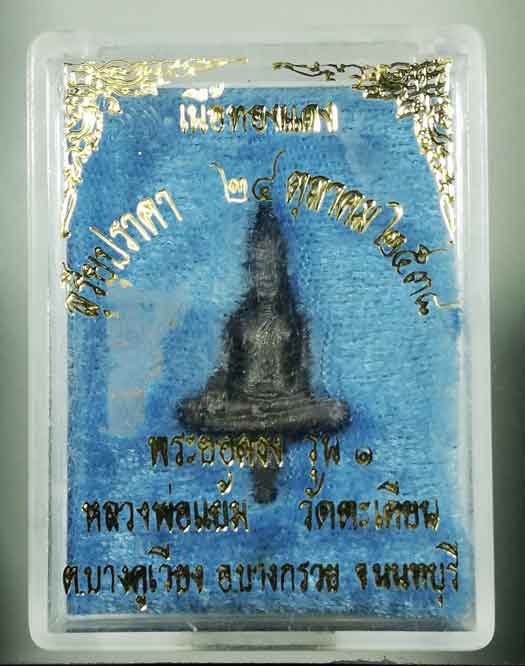 เนื้อทองแดง
สุริยุปราคา ๒๔ ตุลาคม ๒๕๓๘
พระยอดธง รุ่น ๑
หลวงพ่อแย้ม วัดตะเคียน
ต.บางคูเวียง อ.บางกรวย จ.นนทบุรี